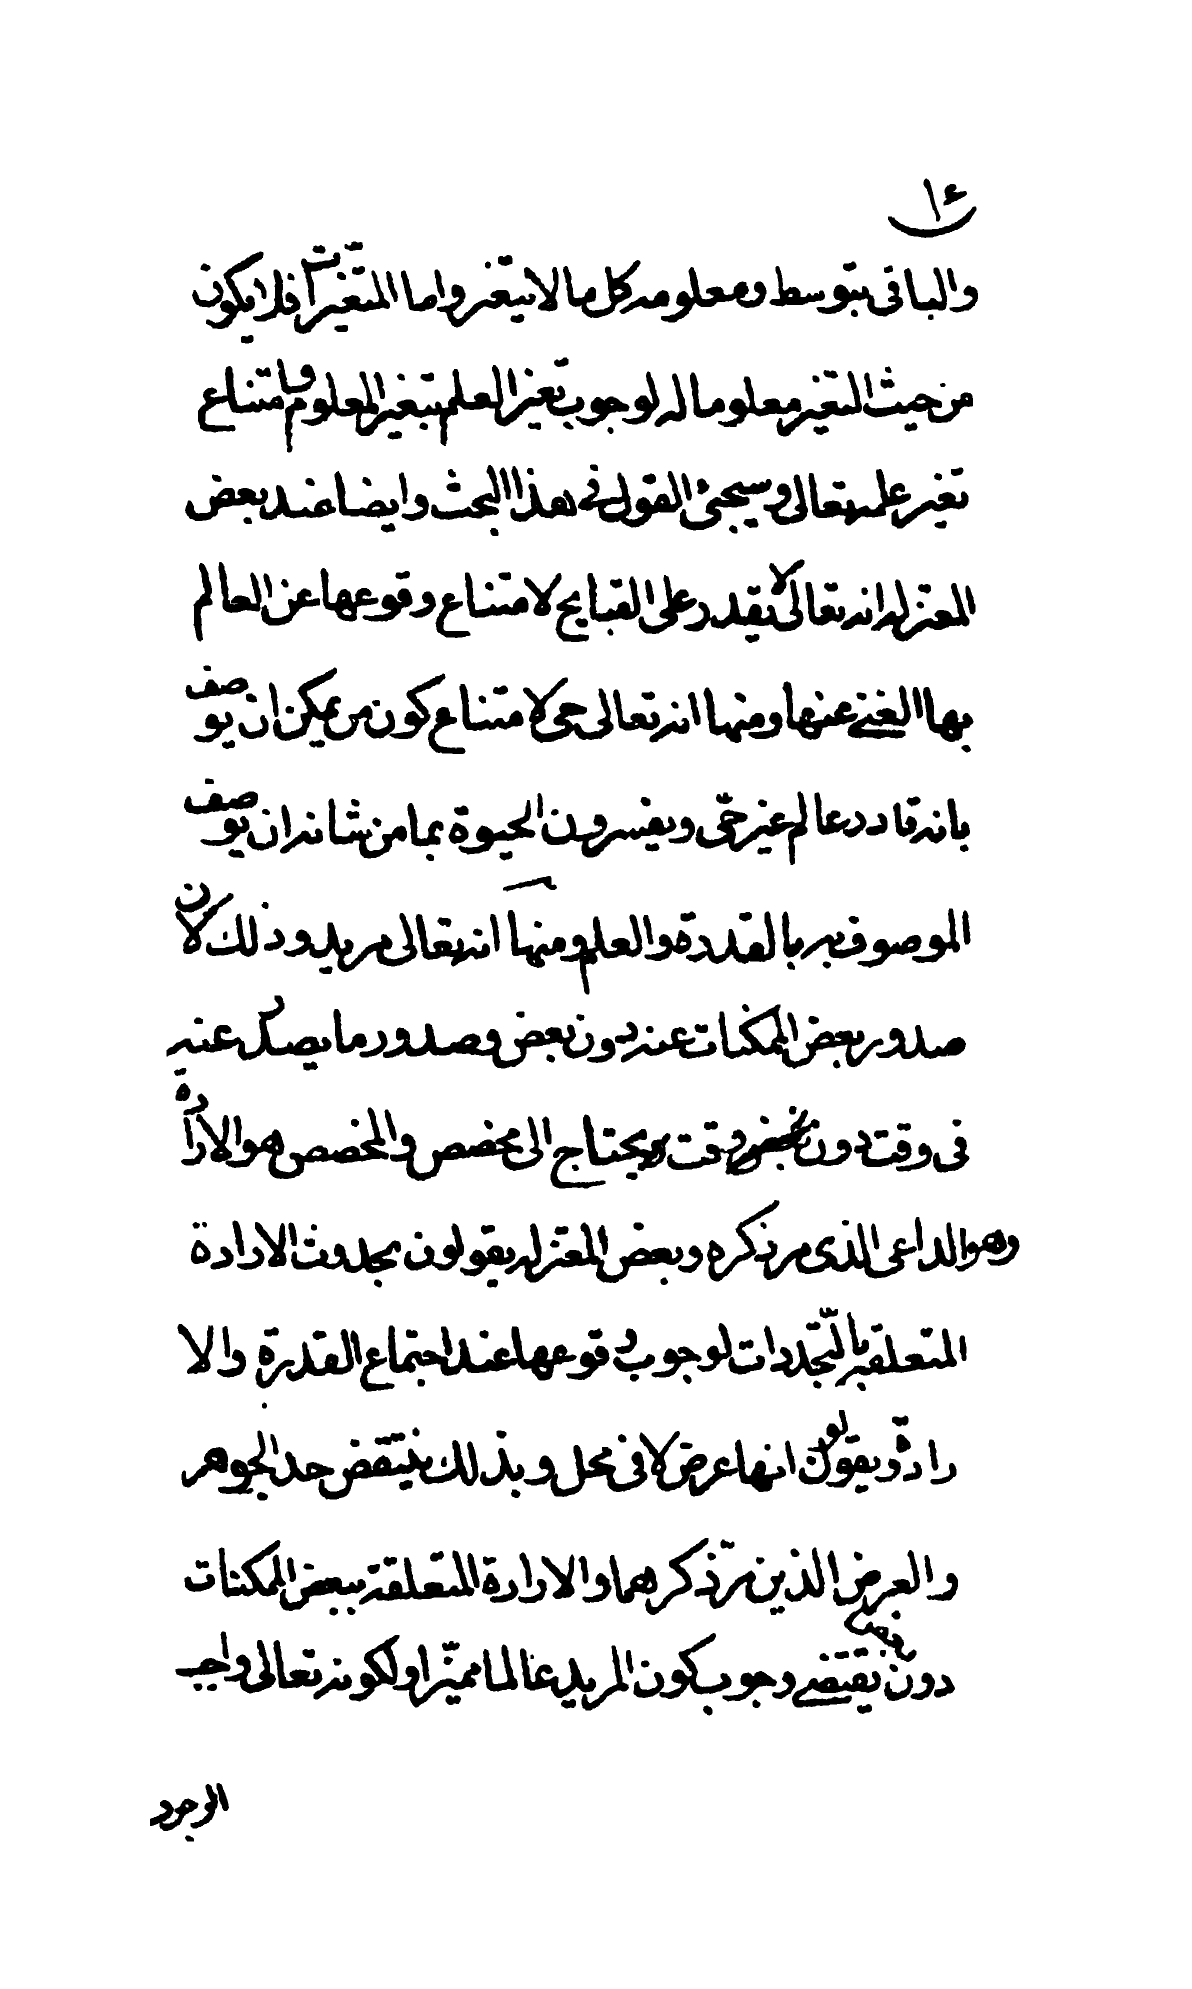 ١٤
والباقى بتوسط ومعلومه كل ما لا يتغير واما المتغيرات فلا يكون
من حيث التغير معلوما له لوجوب تغير العلم بتغير المعلوم وامتناع
تغير علمه تعالى وسيجئ القول فى هذا البحث وايضا عند بعض
المعتزله انه تعالى لا يقدر على القبايح لامتناع وقوعها عن العالم
بها الغنى عنها ومنها انه تعالى حى لامتناع كون من يمكن ان يوصف
بانه قادر عالم غير حىّ ويفسرون الحيوة بما من شانه ان يوصف
الموصوف به بالقدرة والعلم ومنها انه تعالى مريد وذلك لان
صدور بعض الممكنات عنه دون بعض وصدور ما يصدر عنه
فى وقت دون وقت يحتاج الى مخصص والمخصص هو الارادة
وهو الداعى الذى مر ذكره وبعض المعتزله يقولون بحدوث الارادة
المتعلقه بالمتجّددات لوجوب وقوعها عند اجتماع القدرة والا
رادة ويقولون انها عرض لا فى محل وبذلك ينتقض حد الجوهر
والعرض الذين مرّ ذكرهما والارادة المتعلقة ببعض الممكنات
دون بعض يقتضى وجوب كون المريد عالما مميّزا ولكونه تعالى واجب
الوجود